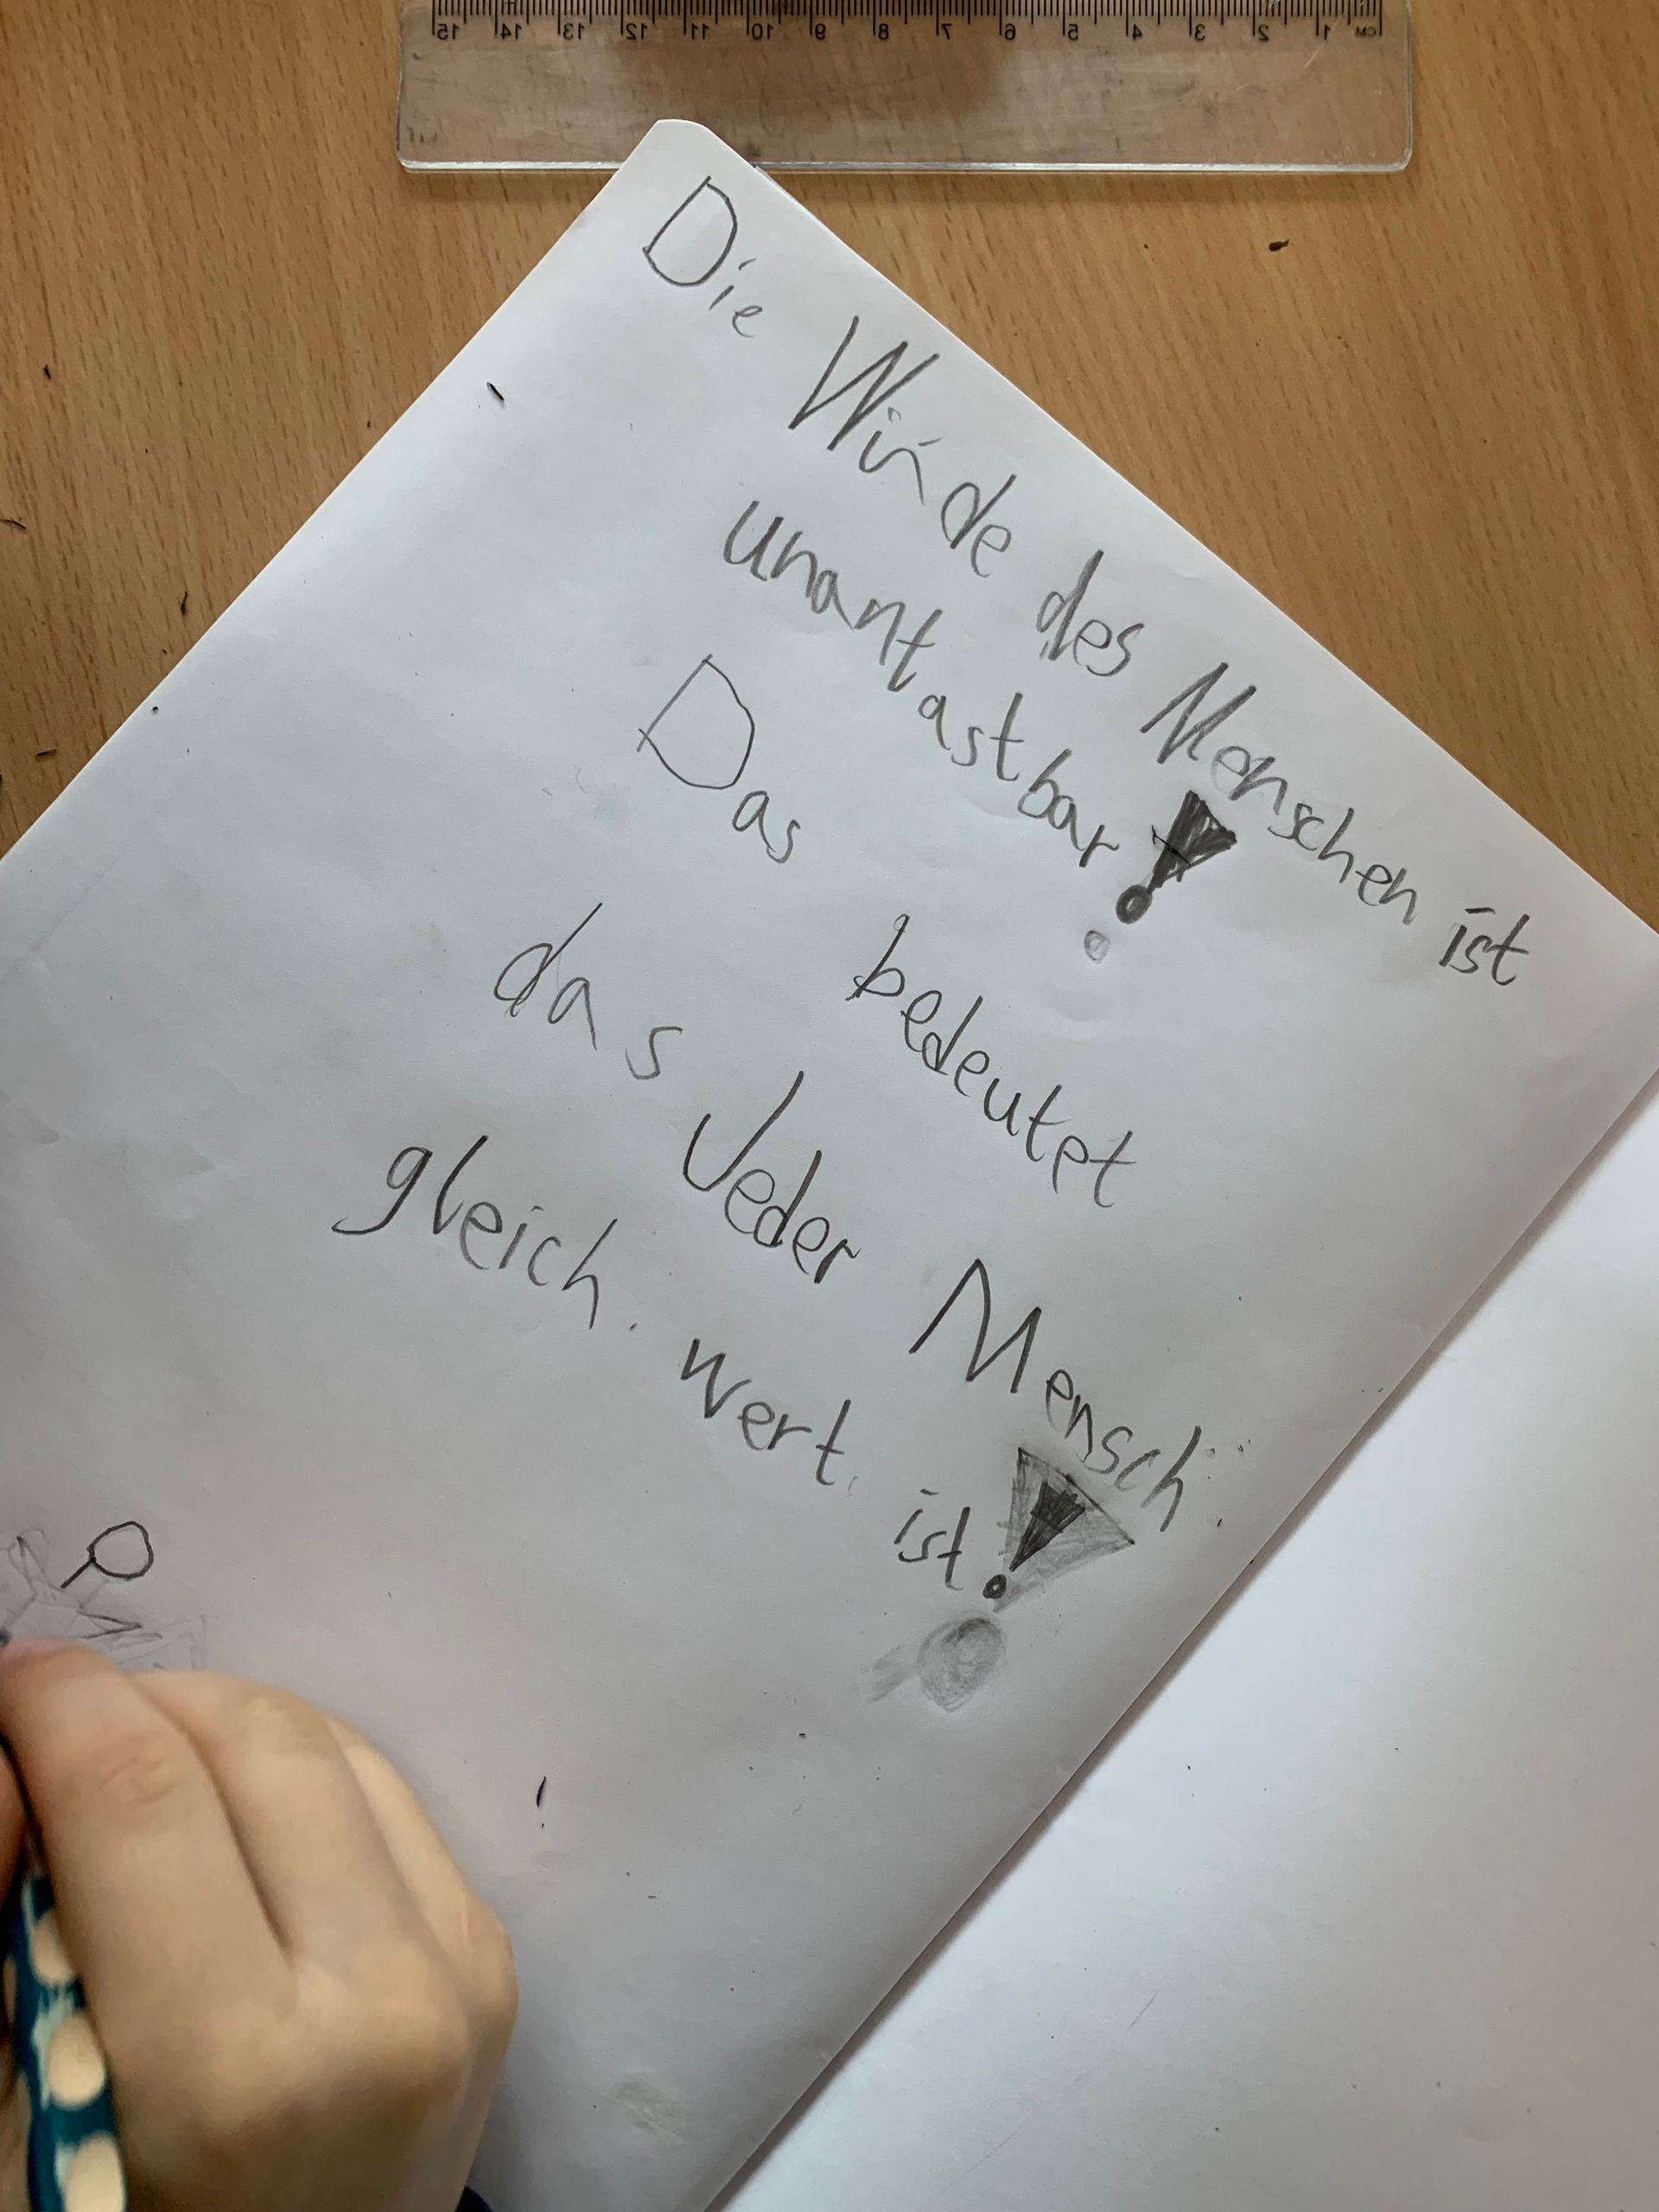 15 14 13 12 11 10 9 8 7 6 5 4 3 2 1 CM
Die Würde des Menschen ist
unantastbar!
Das bedeutet
das Jeder Mensch
gleich wert ist!